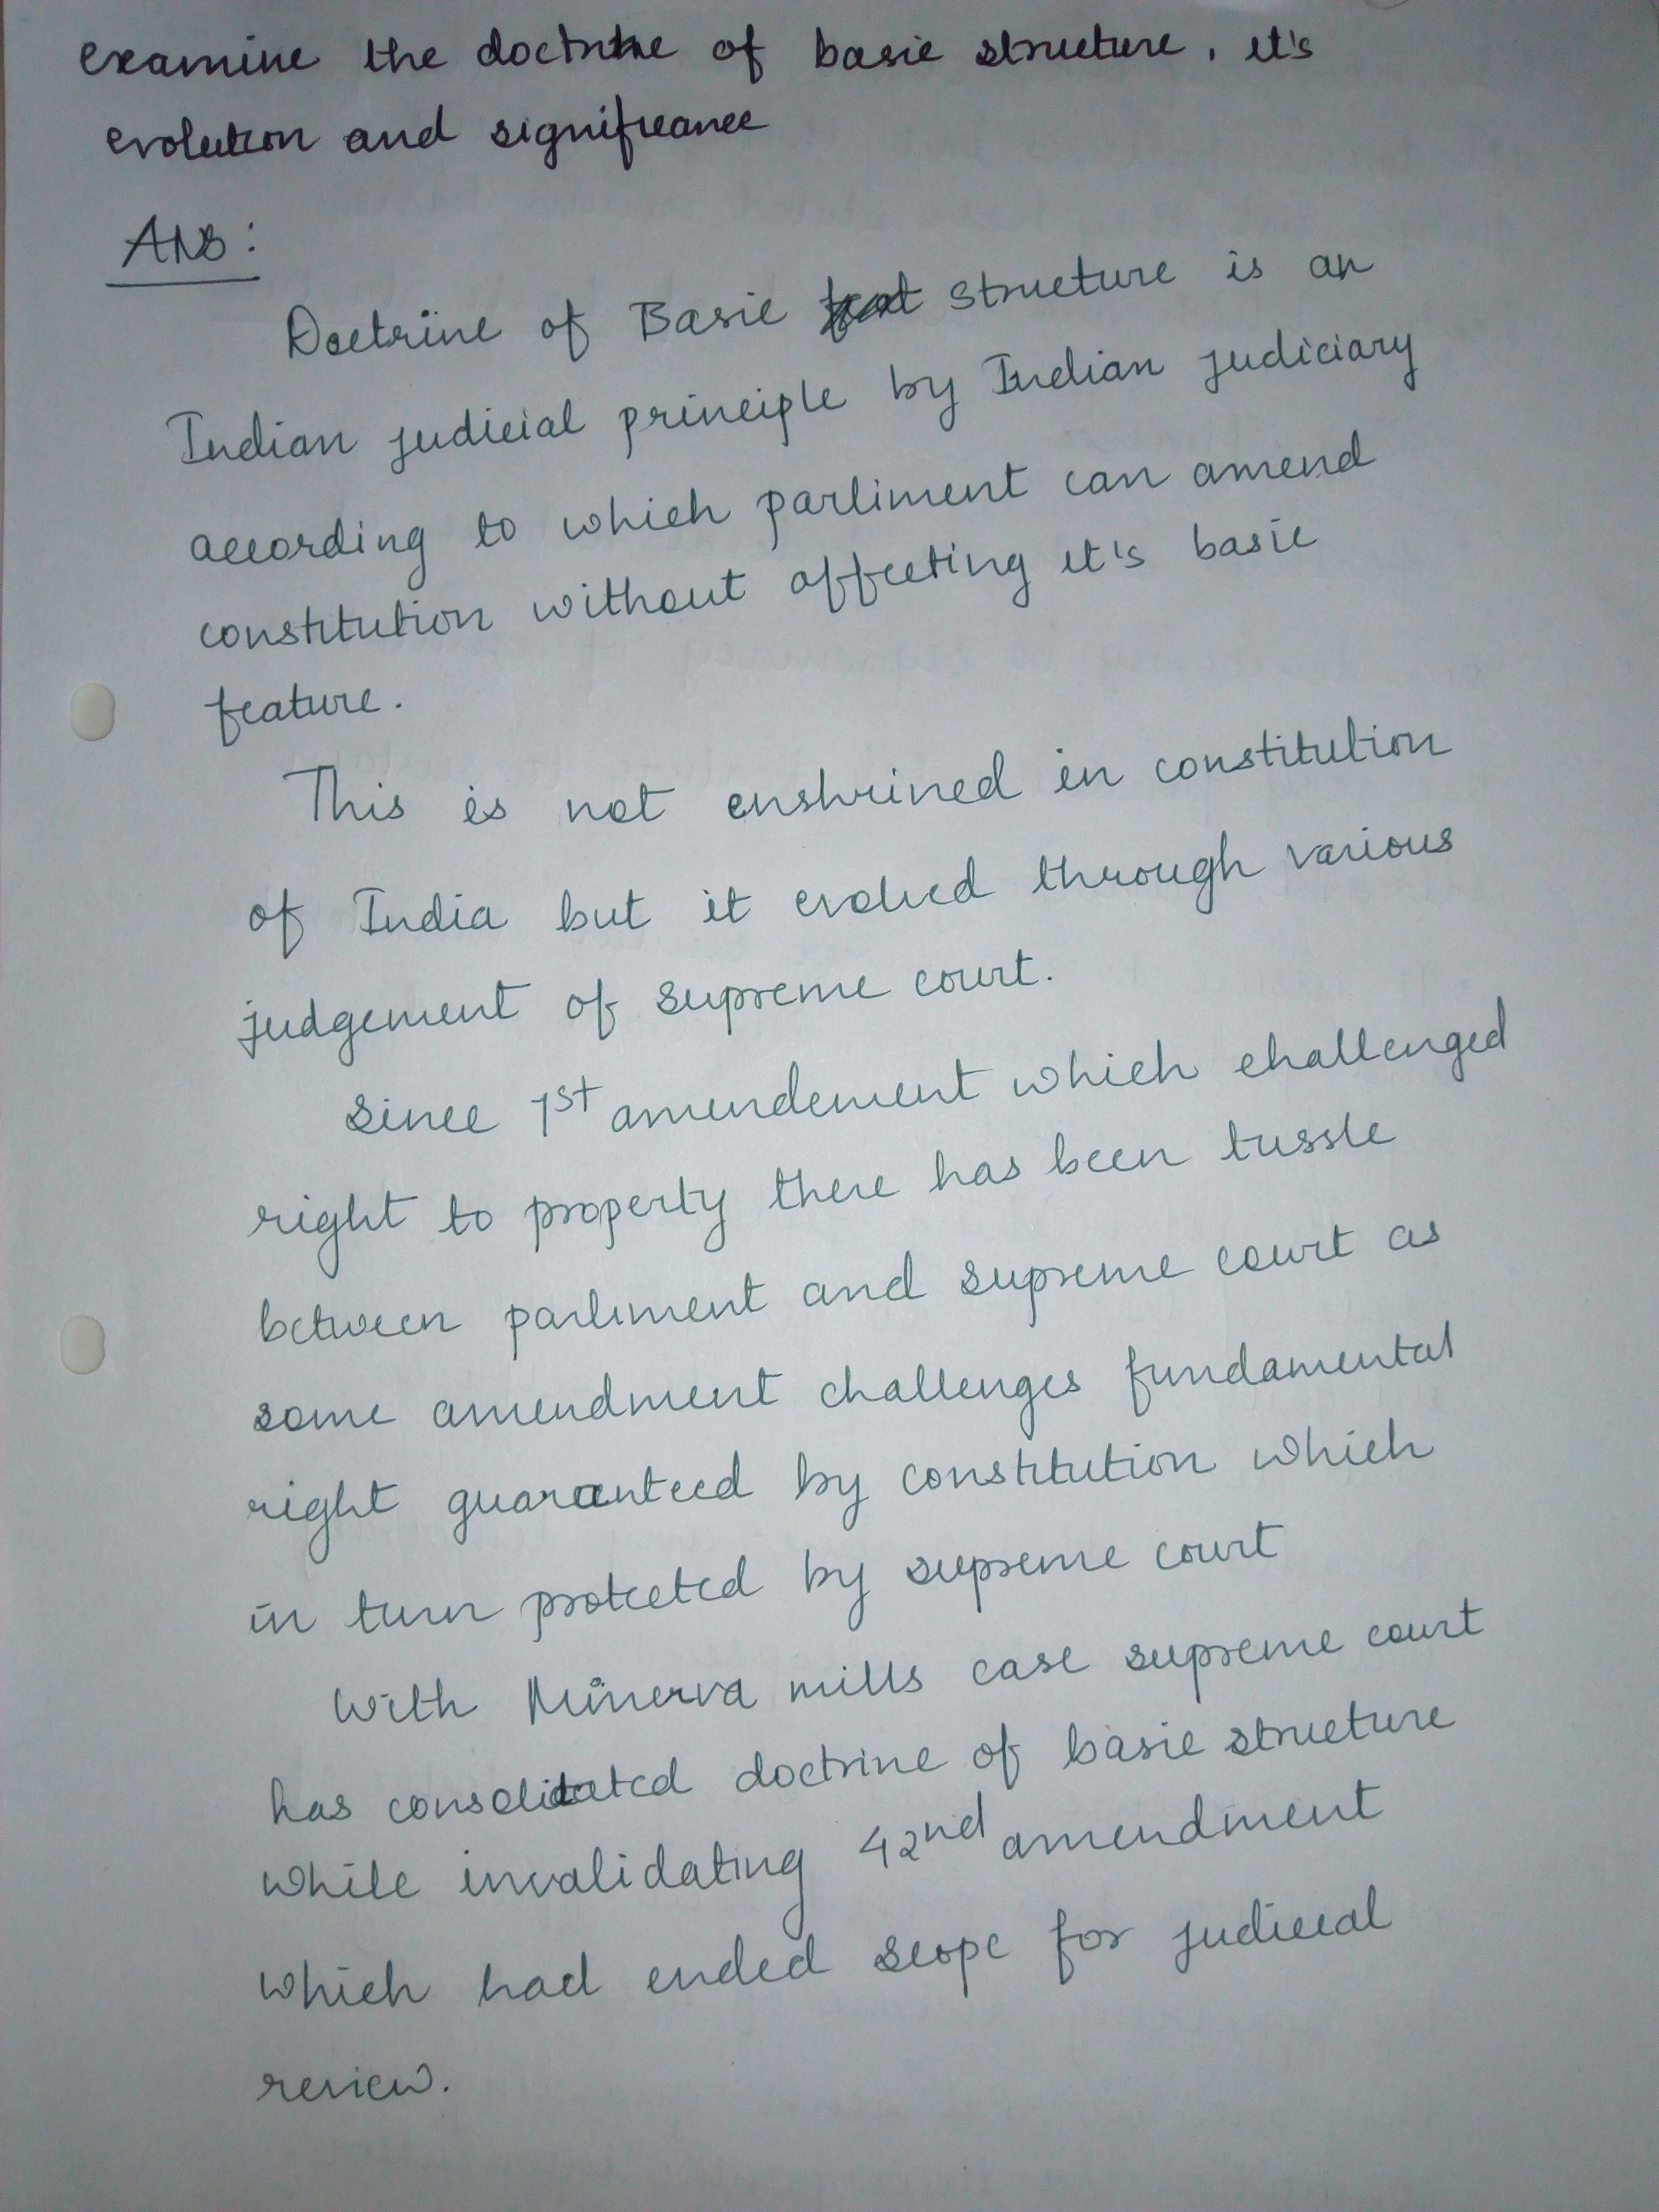 examine the doctrine of basic structure, it's
evolution and significance
Ans:
Doctrine of Basic structure is an
Indian judicial principle by Indian judiciary
according to which parliment can amend
constitution without affecting it's basic
feature.
This is not enshrined in constitution
of India but it evolved through various
judgement of supreme court.
Since 1st amendement which challenged
right to property there has been tussle
between parliment and supreme court as
some amendment challenges fundamental
right guaranteed by constitution which
in turn protected by supreme court
With Minerva mills case supreme court
has consolidated doctrine of basic structure
while invalidating 42nd amendment
which had ended scope for judicial
review.